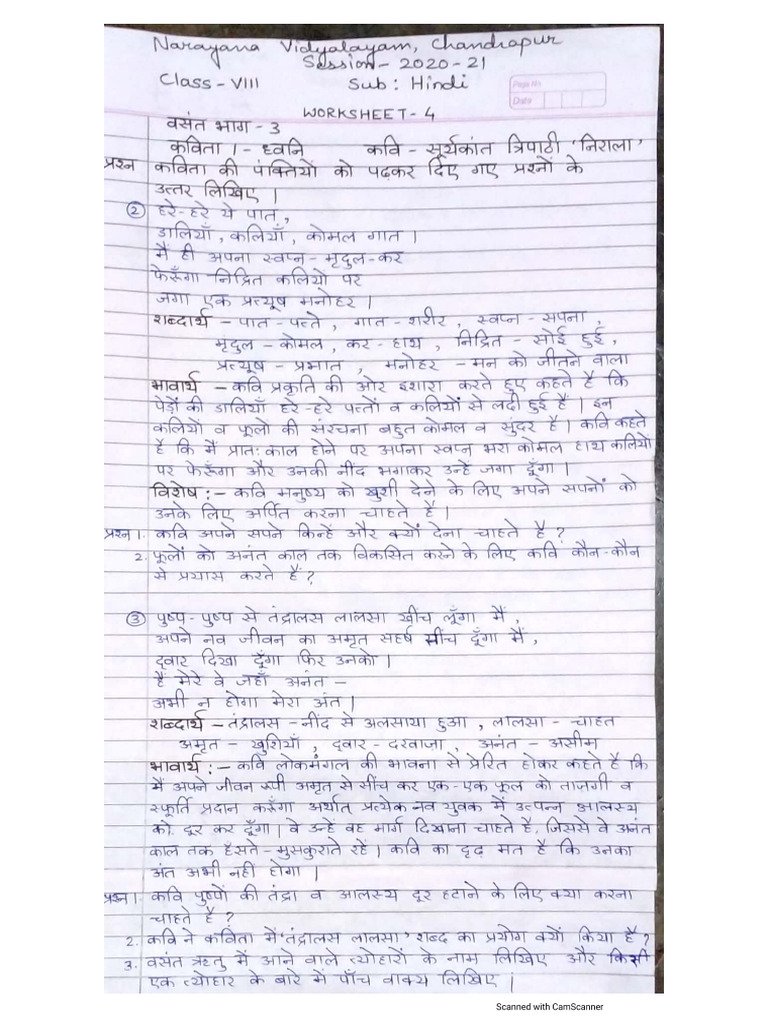 Narayana Vidyalayam, Chandrapur
Session - 2020-21
Class - VIII Sub : Hindi
Page No
Date
WORKSHEET - 4
वसंत भाग - 3
कविता 1 - ध्वनि कवि - सूर्यकांत त्रिपाठी 'निराला'
प्रश्न कविता की पंक्तियों को पढ़कर दिए गए प्रश्नों के
उत्तर लिखिए |
② हरे-हरे ये पात,
डालियाँ, कलियाँ, कोमल गात |
मैं ही अपना स्वप्न-मृदुल-कर
फेरूँगा निद्रित कलियों पर
जगा एक प्रत्यूष मनोहर |
शब्दार्थ - पात - पत्ते, गात - शरीर, स्वप्न - सपना,
मृदुल - कोमल, कर - हाथ, निद्रित - सोई हुई,
प्रत्यूष - प्रभात, मनोहर - मन को जीतने वाला
भावार्थ - कवि प्रकृति की ओर इशारा करते हुए कहते है कि
पेड़ों की डालियाँ हरे-हरे पत्तों व कलियों से लदी हुई है | इन
कलियों व फूलों की संरचना बहुत कोमल व सुंदर है | कवि कहते
है कि मैं प्रात: काल होने पर अपना स्वप्न भरा कोमल हाथ कलियों
पर फेरूँगा और उनकी नींद भगाकर उन्हें जगा दूँगा |
विशेष :- कवि मनुष्य को खुशी देने के लिए अपने सपनों को
उनके लिए अर्पित करना चाहते है |
प्रश्न 1. कवि अपने सपने किन्हें और क्यों देना चाहते है ?
2. फूलों को अनंत काल तक विकसित करने के लिए कवि कौन-कौन
से प्रयास करते हैं ?
③ पुष्प-पुष्प से तंद्रालस लालसा खींच लूँगा मैं,
अपने नव जीवन का अमृत सहर्ष सींच दूँगा मैं,
द्वार दिखा दूँगा फिर उनको |
हैं मेरे वे जहाँ अनंत -
अभी न होगा मेरा अंत |
शब्दार्थ - तंद्रालस - नींद से अलसाया हुआ, लालसा - चाहत
अमृत - खुशियाँ, द्वार - दरवाजा, अनंत - असीम
भावार्थ :- कवि लोकमंगल की भावना से प्रेरित होकर कहते है कि
मैं अपने जीवन रूपी अमृत से सींच कर एक-एक फूल को ताजगी व
स्फूर्ति प्रदान करूँगा अर्थात् प्रत्येक नव युवक में उत्पन्न आलस्य
को दूर कर दूँगा | वे उन्हें वह मार्ग दिखाना चाहते है, जिससे वे अनंत
काल तक हँसते-मुसकुराते रहें | कवि का दृढ़ मत है कि उनका
अंत अभी नहीं होगा |
प्रश्न 1. कवि पुष्पों की तंद्रा व आलस्य दूर हटाने के लिए क्या करना
चाहते है ?
2. कवि ने कविता में 'तंद्रालस लालसा' शब्द का प्रयोग क्यों किया है ?
3. वसंत ऋतु में आने वाले त्योहारों के नाम लिखिए और किसी
एक त्योहार के बारे में पाँच वाक्य लिखिए |
Scanned with CamScanner